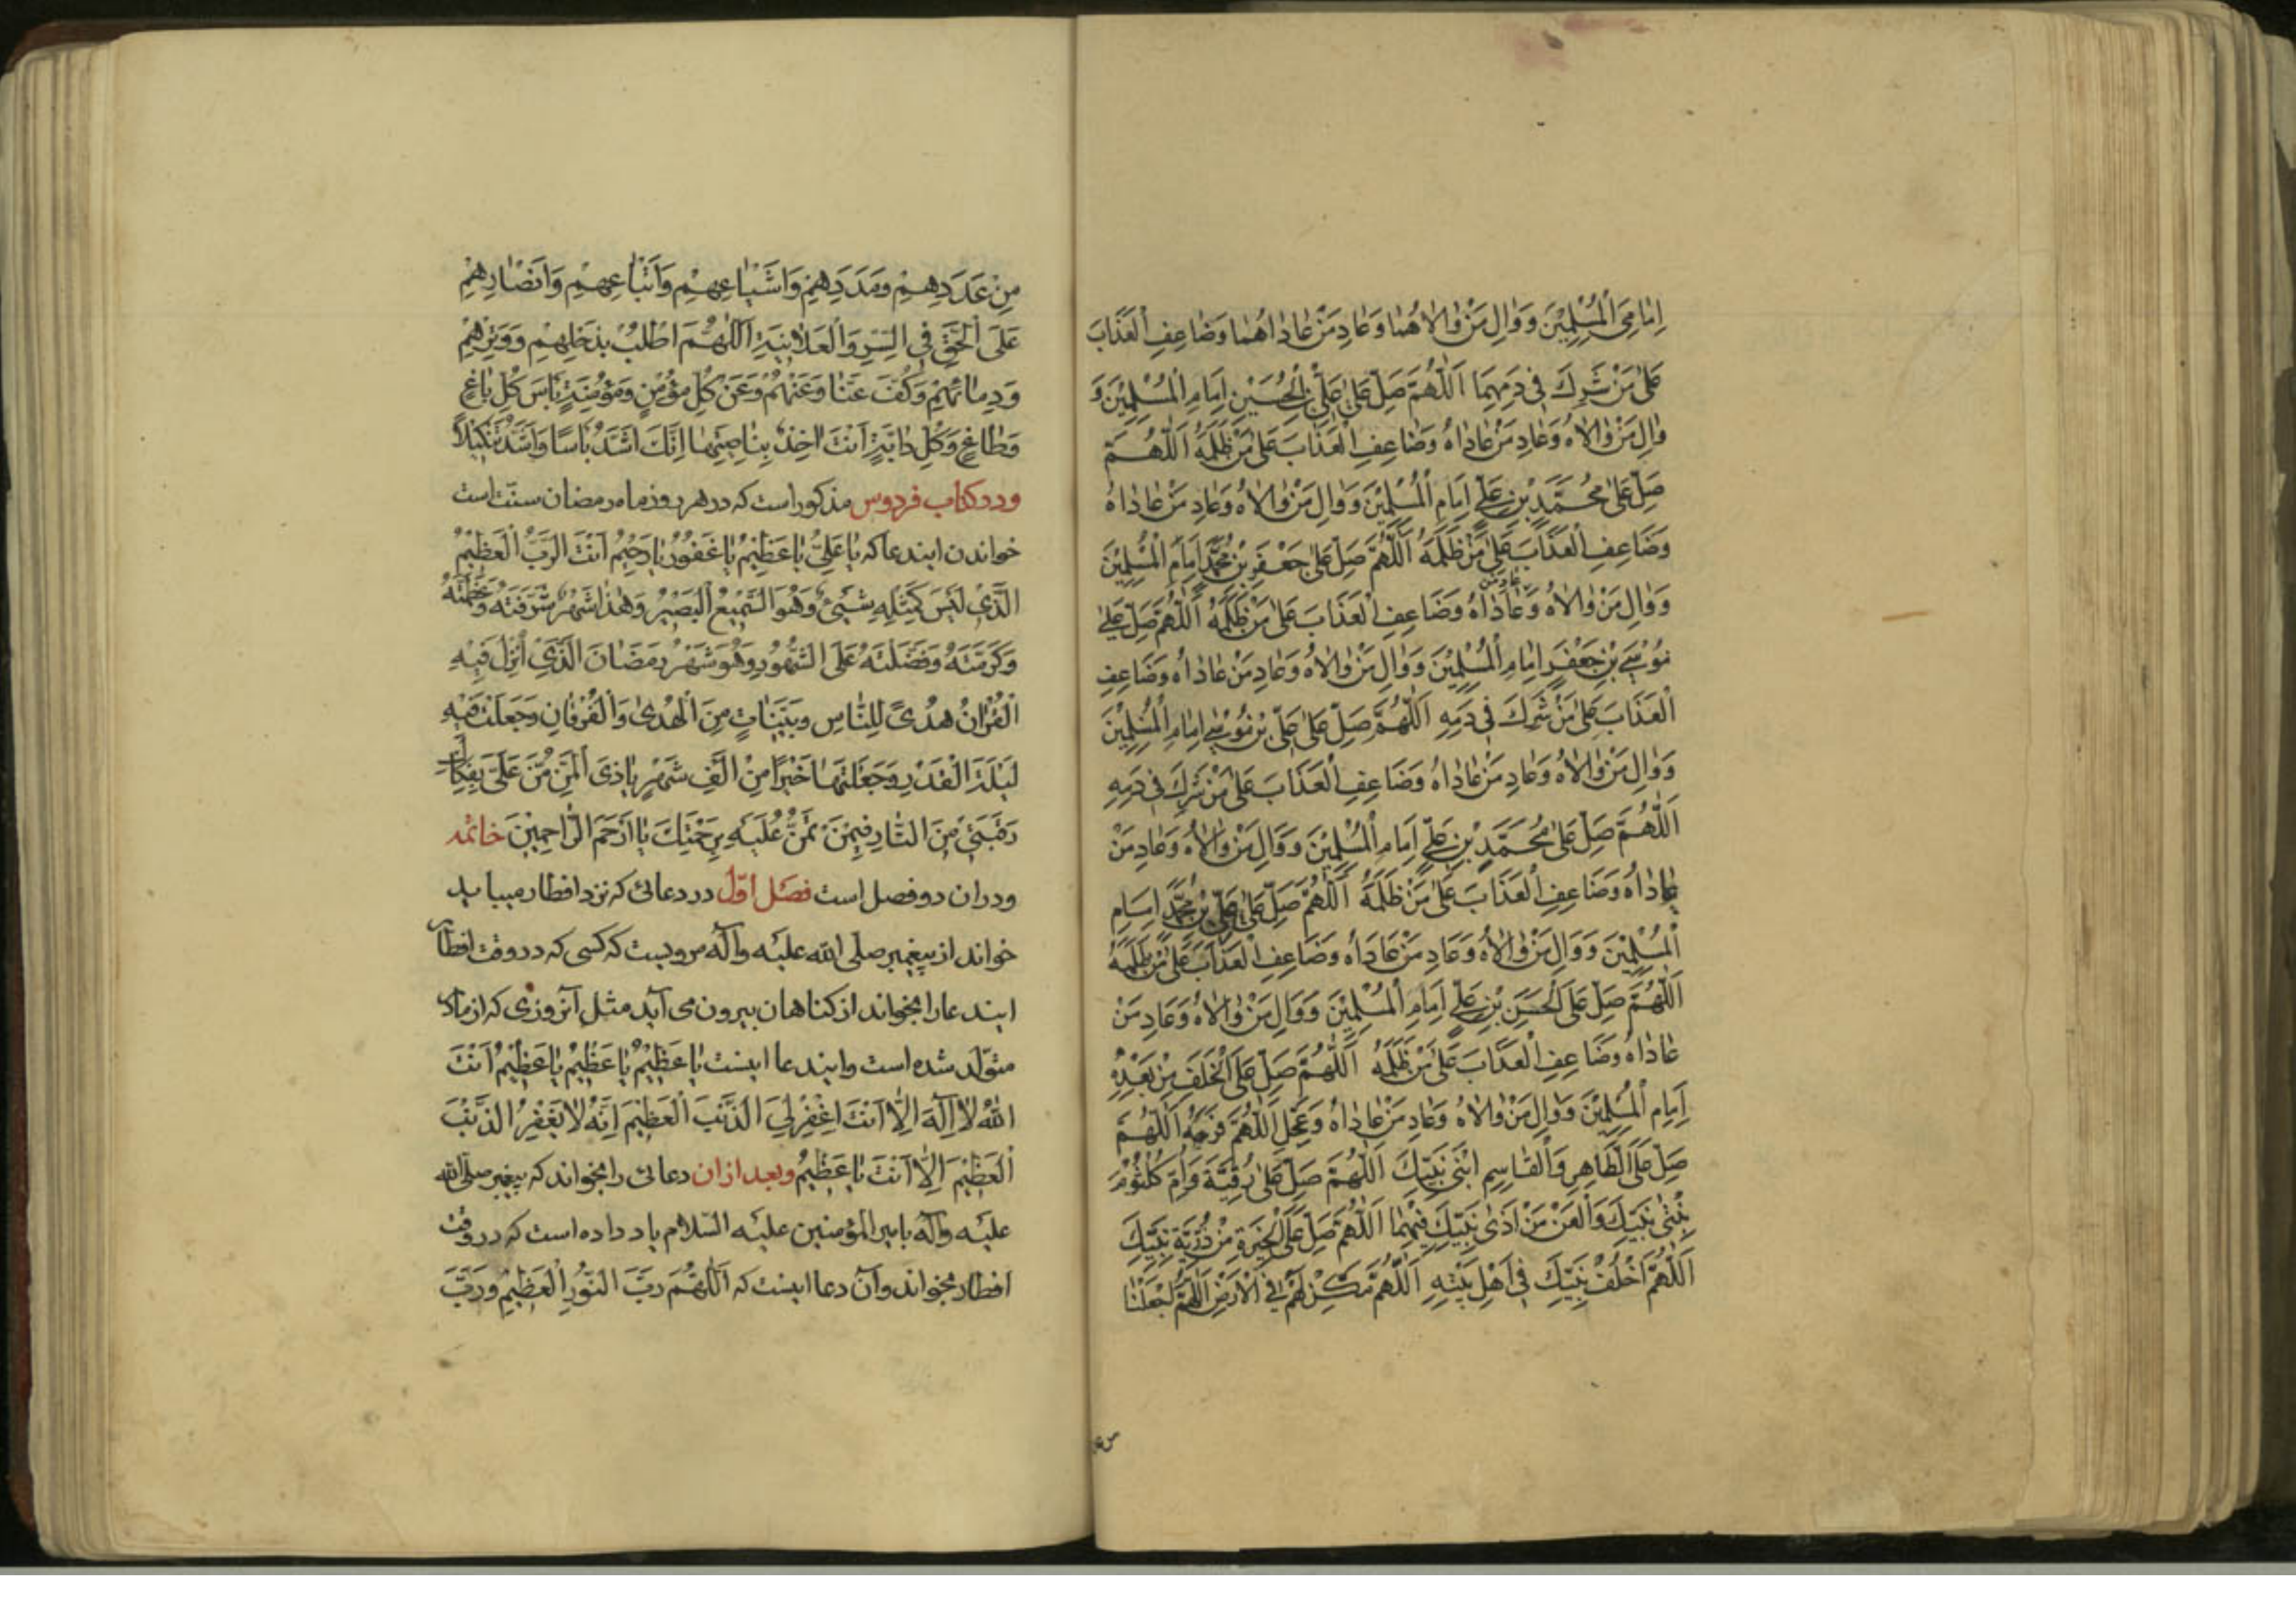 اِمَامَىِ الْمُسْلِمِيْنَ وَوَالِ مَنْ وَالاهُمَا وَعَادِ مَنْ عَادَاهُمَا وَضَاعِفِ الْعَذَابَ
عَلَى مَنْ شَرِكَ فِي دَمِهِمَا اَللّٰهُمَّ صَلِّ عَلَى عَلِيِّ بْنِ الْحُسَيْنِ اِمَامِ الْمُسْلِمِيْنَ وَ
وَالِ مَنْ وَالاهُ وَعَادِ مَنْ عَادَاهُ وَضَاعِفِ الْعَذَابَ عَلَى مَنْ ظَلَمَهُ اَللّٰهُمَّ
صَلِّ عَلَى مُحَمَّدِ بْنِ عَلِيٍّ اِمَامِ الْمُسْلِمِيْنَ وَوَالِ مَنْ وَالاهُ وَعَادِ مَنْ عَادَاهُ
وَضَاعِفِ الْعَذَابَ عَلَى مَنْ ظَلَمَهُ اَللّٰهُمَّ صَلِّ عَلَى جَعْفَرِ بْنِ مُحَمَّدٍ اِمَامِ الْمُسْلِمِيْنَ
وَوَالِ مَنْ وَالاهُ وَعَادِ مَنْ عَادَاهُ وَضَاعِفِ الْعَذَابَ عَلَى مَنْ ظَلَمَهُ اَللّٰهُمَّ صَلِّ عَلَى
مُوْسَى بْنِ جَعْفَرٍ اِمَامِ الْمُسْلِمِيْنَ وَوَالِ مَنْ وَالاهُ وَعَادِ مَنْ عَادَاهُ وَضَاعِفِ
الْعَذَابَ عَلَى مَنْ شَرِكَ فِي دَمِهِ اَللّٰهُمَّ صَلِّ عَلَى عَلِيِّ بْنِ مُوْسَى اِمَامِ الْمُسْلِمِيْنَ
وَوَالِ مَنْ وَالاهُ وَعَادِ مَنْ عَادَاهُ وَضَاعِفِ الْعَذَابَ عَلَى مَنْ شَرِكَ فِي دَمِهِ
اَللّٰهُمَّ صَلِّ عَلَى مُحَمَّدِ بْنِ عَلِيٍّ اِمَامِ الْمُسْلِمِيْنَ وَوَالِ مَنْ وَالاهُ وَعَادِ مَنْ
عَادَاهُ وَضَاعِفِ الْعَذَابَ عَلَى مَنْ ظَلَمَهُ اَللّٰهُمَّ صَلِّ عَلَى عَلِيِّ بْنِ مُحَمَّدٍ اِمَامِ
الْمُسْلِمِيْنَ وَوَالِ مَنْ وَالاهُ وَعَادِ مَنْ عَادَاهُ وَضَاعِفِ الْعَذَابَ عَلَى مَنْ ظَلَمَهُ
اَللّٰهُمَّ صَلِّ عَلَى الْحَسَنِ بْنِ عَلِيٍّ اِمَامِ الْمُسْلِمِيْنَ وَوَالِ مَنْ وَالاهُ وَعَادِ مَنْ
عَادَاهُ وَضَاعِفِ الْعَذَابَ عَلَى مَنْ ظَلَمَهُ اَللّٰهُمَّ صَلِّ عَلَى الْخَلَفِ مِنْ بَعْدِهِ
اِمَامِ الْمُسْلِمِيْنَ وَوَالِ مَنْ وَالاهُ وَعَادِ مَنْ عَادَاهُ وَعَجِّلِ اللّٰهُمَّ فَرَجَهُ اَللّٰهُمَّ
صَلِّ عَلَى الطَّاهِرِ وَالْقَاسِمِ ابْنَيْ نَبِيِّكَ اَللّٰهُمَّ صَلِّ عَلَى رُقَيَّةَ وَاُمِّ كُلْثُوْمَ
بِنْتَيْ نَبِيِّكَ وَالْعَنْ مَنْ اٰذَى نَبِيَّكَ فِيْهِمَا اَللّٰهُمَّ صَلِّ عَلَى الْخِيَرَةِ مِنْ ذُرِّيَّةِ نَبِيِّكَ
اَللّٰهُمَّ اخْلُفْ نَبِيَّكَ فِي اَهْلِ بَيْتِهِ اَللّٰهُمَّ مَكِّنْ لَهُمْ فِي الْاَرْضِ اَللّٰهُمَّ اجْعَلْنَا
مِنْ عَدَدِهِمْ وَمَدَدِهِمْ وَاَشْيَاعِهِمْ وَاَتْبَاعِهِمْ وَاَنْصَارِهِمْ
عَلَى الْحَقِّ فِي السِّرِّ وَالْعَلَانِيَةِ اَللّٰهُمَّ اطْلُبْ بِذَحْلِهِمْ وَوَتْرِهِمْ
وَدِمَائِهِمْ وَكُفَّ عَنَّا وَعَنْهُمْ وَعَنْ كُلِّ مُؤْمِنٍ وَمُؤْمِنَةٍ بَأْسَ كُلِّ بَاغٍ
وَطَاغٍ وَكُلِّ دَابَّةٍ اَنْتَ اٰخِذٌ بِنَاصِيَتِهَا اِنَّكَ اَشَدُّ بَاْسًا وَاَشَدُّ تَنْكِيْلاً
ودر كتاب فردوس مذكور است كه در هر روز ماه رمضان سنّت است
خواندن ايندعا كه يَا عَلِيُّ يَا عَظِيْمُ يَا غَفُوْرُ يَا رَحِيْمُ اَنْتَ الرَّبُّ الْعَظِيْمُ
الَّذِي لَيْسَ كَمِثْلِهِ شَيْئٌ وَهُوَ السَّمِيْعُ الْبَصِيْرُ وَهٰذَا شَهْرٌ شَرَّفْتَهُ وَعَظَّمْتَهُ
وَكَرَّمْتَهُ وَفَضَّلْتَهُ عَلَى الشُّهُوْرِ وَهُوَ شَهْرُ رَمَضَانَ الَّذِي اُنْزِلَ فِيْهِ
الْقُرْاٰنُ هُدًى لِلنَّاسِ وَبَيِّنَاتٍ مِنَ الْهُدَى وَالْفُرْقَانِ وَجَعَلْتَ فِيْهِ
لَيْلَةَ الْقَدْرِ وَجَعَلْتَهَا خَيْرًا مِنْ اَلْفِ شَهْرٍ يَا ذَى الْمَنِّ مُنَّ عَلَيَّ بِفِكَاكِ
رَقَبَتِي مِنَ النَّارِ فِيْمَنْ تَمُنُّ عَلَيْهِ بِرَحْمَتِكَ يَا اَرْحَمَ الرَّاحِمِيْنَ خاتمه
ودران دو فصل است فصل اوّل در دعائى كه نزد افطار ميبايد
خواند از پيغمبر صلى الله عليه وآله مرويست كه كسى كه در وقت افطار
ايندعا را بخواند از كناهان بيرون مى آيد مثل آنروزى كه از مادر
متولّد شده است وايندعا اينست يَا عَظِيْمُ يَا عَظِيْمُ يَا عَظِيْمُ اَنْتَ
اللّٰهُ لَا اِلٰهَ اِلَّا اَنْتَ اغْفِرْ لِيَ الذَّنْبَ الْعَظِيْمَ اِنَّهُ لَا يَغْفِرُ الذَّنْبَ
الْعَظِيْمَ اِلَّا اَنْتَ يَا عَظِيْمُ وبعد ازان دعائى را بخواند كه پيغمبر صلى الله
عليه وآله بامير المؤمنين عليه السّلام ياد داده است كه در وقت
افطار بخواند وآن دعا اينست كه اَللّٰهُمَّ رَبَّ النُّوْرِ الْعَظِيْمِ وَرَبَّ